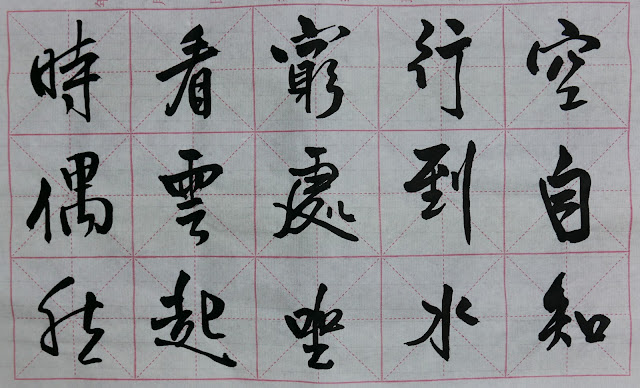 空自知
行到水
窮處坐
看雲起
時偶然